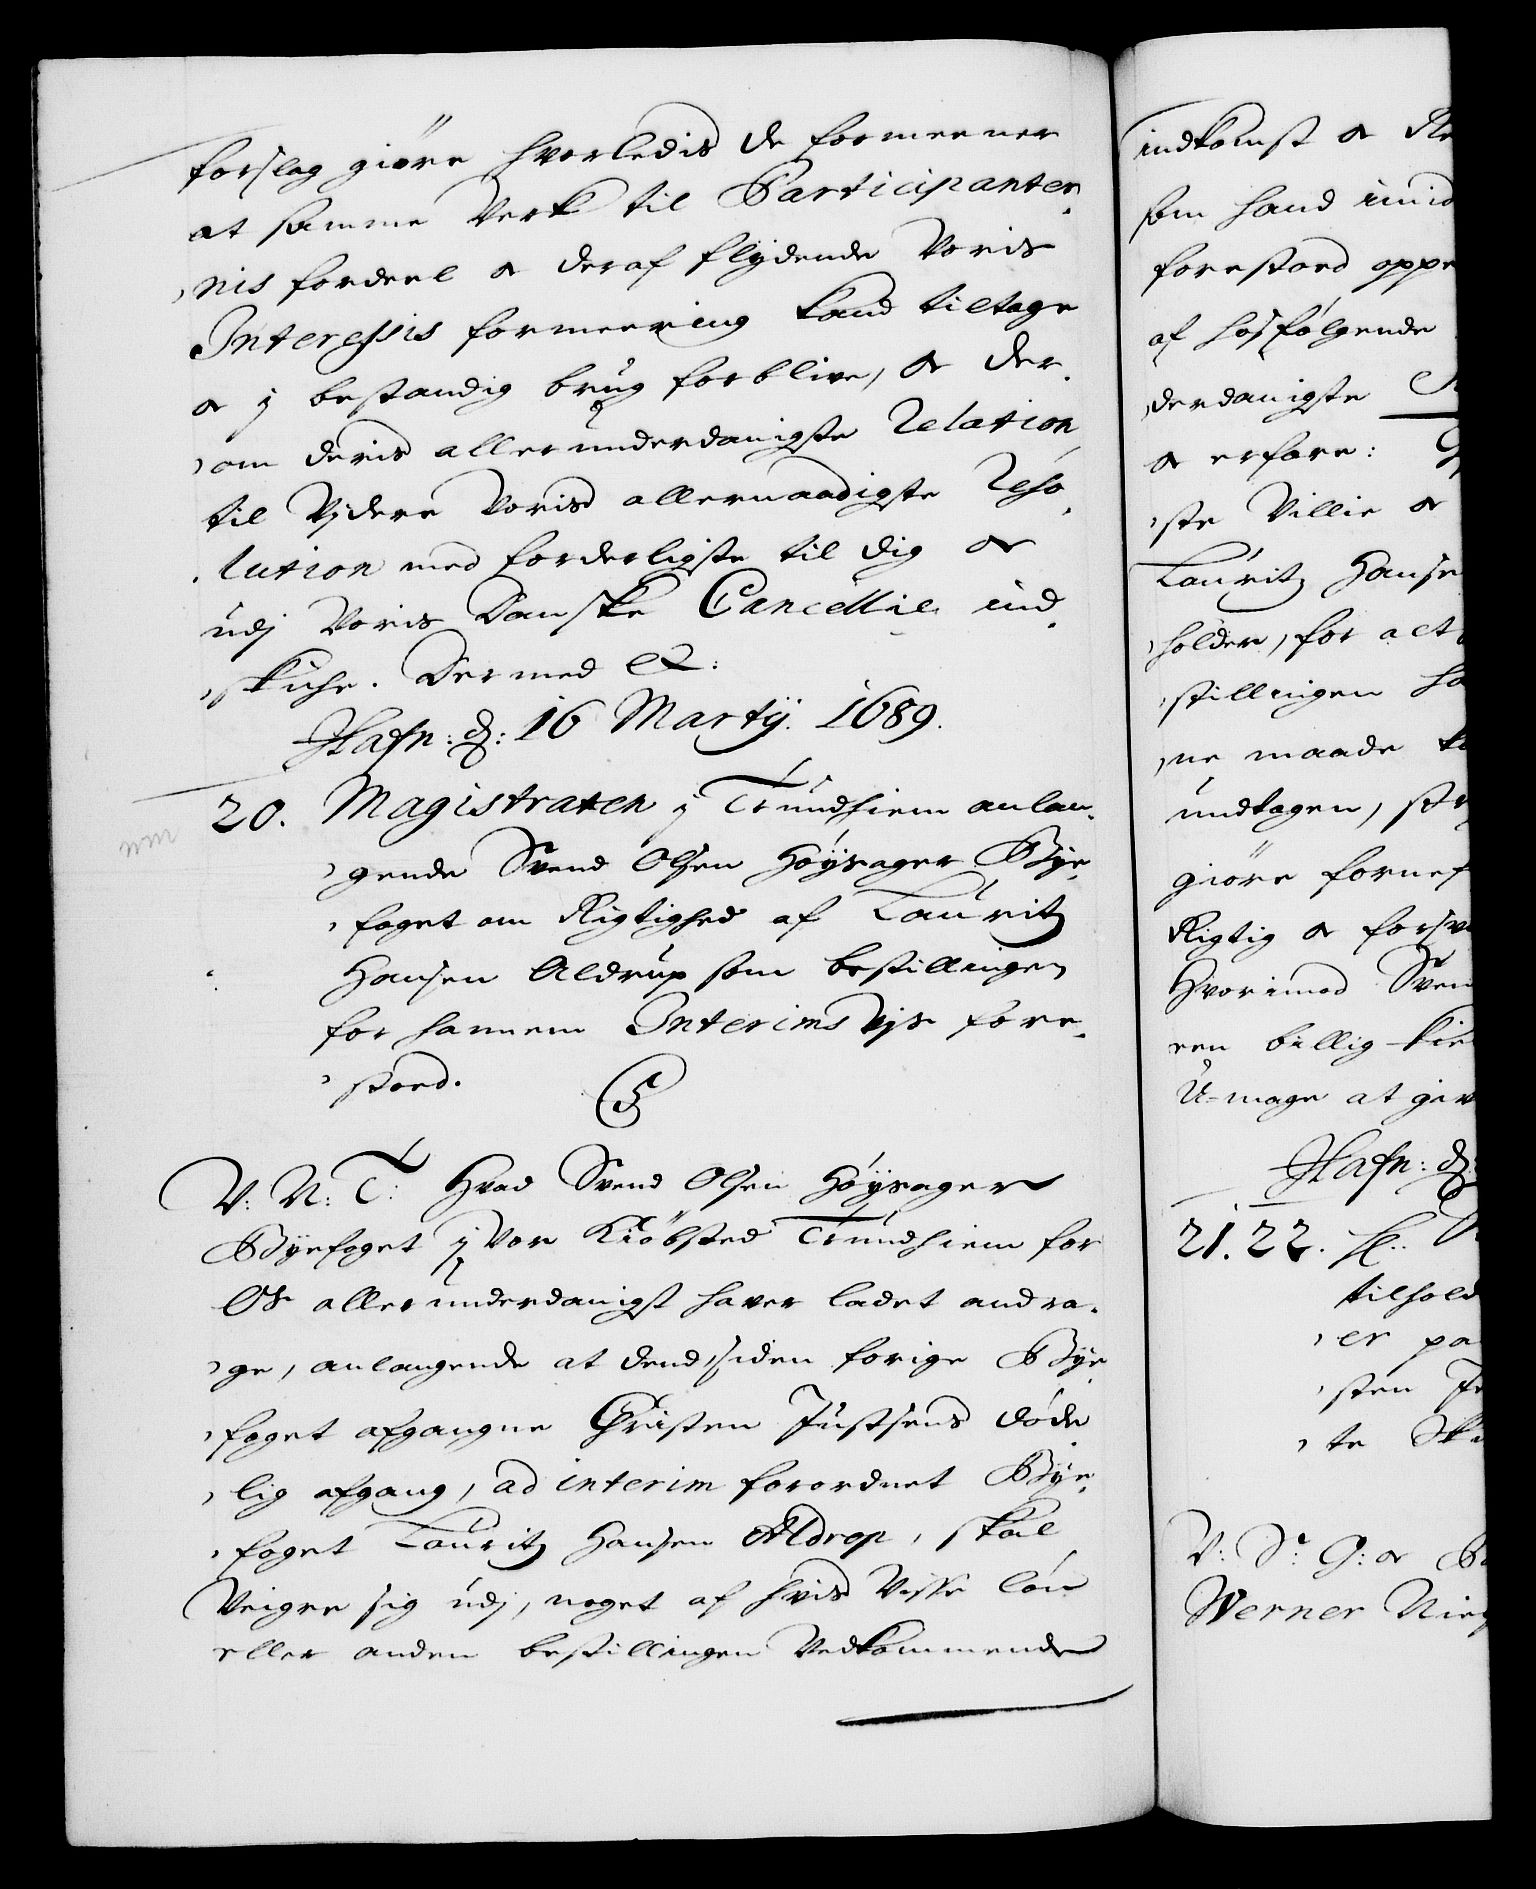 forslag giöre hvorledis de formeener
at samme Verk til Participanter,
,nis fordeel og deraf flÿdende Voris
Interessis formeering kand tiltage
og j bestandig brug forblive, og der,
,om deris allerunderdanigste Relation
til Vjdere Voris allernaadigste Reso,
,lution med forderligste til dig og
udj Voris Danske Cancellie ind,
,skiche. Dermed etc:
Hafn: d: 16 Martÿ. 1689.
20. Magistraten j Trundhiem anlan,
,gende Svend Olsen Höÿsager Bÿe,
,foget om Rigtighed af Lauritz
Hansen Aldrup som bestillingen
for hannem Interims Vjs fore,
,stoed.
C5
V: N: T: Hvad Svend Olsen Höÿsager
Bÿefoget j Vor Kiöbsted Trundhiem for
Os allerunderdanigst haver ladet andra,
,ge, anlangende at dend, siden forige Bÿe
,foget afgangne Christen Justsens döde
,lig afgang, ad interim forordnet Bÿe,
,foget Lauritz Hansen Aldrop, skal
Veigre sig udj, noget af hvis Visse lön
eller anden bestillingen Vedkommende
indkomst og
som hand imid
forestoed oppe
af hosfölgende
,derdanigste
og erfare:
,ste Villie og
Lauritz Hanse
,holder, for alt
,stillingen ha
,ne maade
undtagen,
giöre fornef
Rigtig og forsv
Hvorimod Sven
een billig
U-mage at giv
Hafn: d:
21. 22. Sl:
tilhold
,er pa
,sten
,te
V: S: G: og
Werner